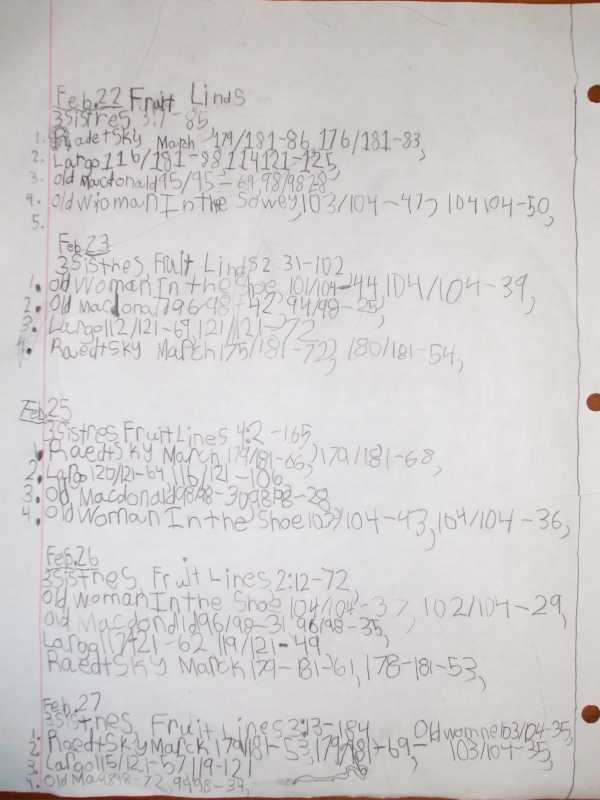 Feb.22 Fruit Linds
3Sistres, 3:7-85,
1. Raedtsky March 179/181-86, 176/181-83,
2. Largo 116/181-88, 114 121-125,
3. Old Macdonald 95/95-69, 98/98 28
4. Old Wioman In the Sowey, 103/104-47, 104 104-50,
5.
Feb.23
3Sistres, Fruit Linds 2:31-102
1. Old Woman In the Shoe 101/104-44, 104/104-39,
2. Old Macdonald 96/98-42, 94/98-25,
3. Largo 112/121-69, 121/121-72
4. Raedtsky March 175/181-72, 180/181-54,
Feb.25
3Sistres, Fruit Lines 4:2-165,
1. Raedtsky March 179/181-66, 179/181-68,
2. Largo 120/121-64, 116/121-106
3. Old Macdonald 98/98-30, 98/98-28
4. Old Woman In the Shoe 103/104-43, 104/104-36,
Feb.26
3Sistres, Fruit Lines 2:12-72,
Old Woman In the Shoe 104/104-37, 102/104-29,
Old Macdonald 96/98-31, 96/98-35,
Largo 117/121-62, 119/121-49
Raedtsky March 179-181-61, 178-181-53,
Feb.27
3Sistres, Fruit Lines 2:13-184 Old womne 103/104-35,
1.
2. Raedtsky March 179/181-53, 179/181-69, 103/104-35,
3. Largo 115/121-57, 119-121
4. Old Ma 98-72, 94 98-39,